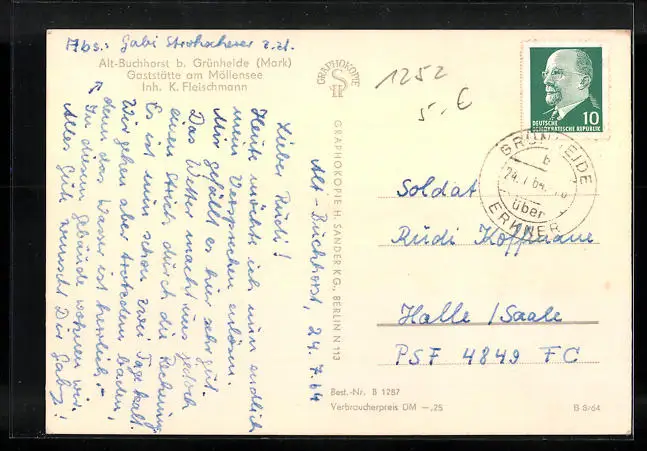 Abs.: Gabi z.Zt.
Alt-Buchhorst b. Grünheide (Mark)
Gaststätte am Möllensee
Inh. K. Fleischmann
Alt-Buchhorst, 24.7.64
Lieber Rudi!
Heute möchte ich nun endlich
mein Versprechen einlösen.
Mir gefällt es hier sehr gut.
Das Wetter macht uns jedoch
einen Strich durch die Rechnung.
Es ist nun schon zwei Tage kalt.
Wir gehen aber trotzdem baden,
denn das Wasser ist herrlich.-
In diesem Gebäude wohnen wir.
Alles Gute wünscht Dir Gaby!
GRAPHOKOPIE
GRAPHOKOPIE H. SANDER KG., BERLIN N 113
1252
5,- €
10
DEUTSCHE
DEMOKRATISCHE REPUBLIK
GRÜNHEIDE
b
24.7.64
über
ERKNER
Soldat
Rudi
Halle/Saale
PSF 4849 FC
Best.-Nr. B 1287
Verbraucherpreis DM -,25
B 8/64